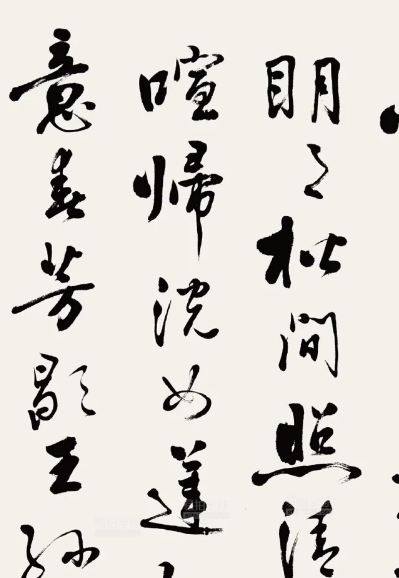 明月松間照清
喧帰浣女蓮
意春芳歇王孫